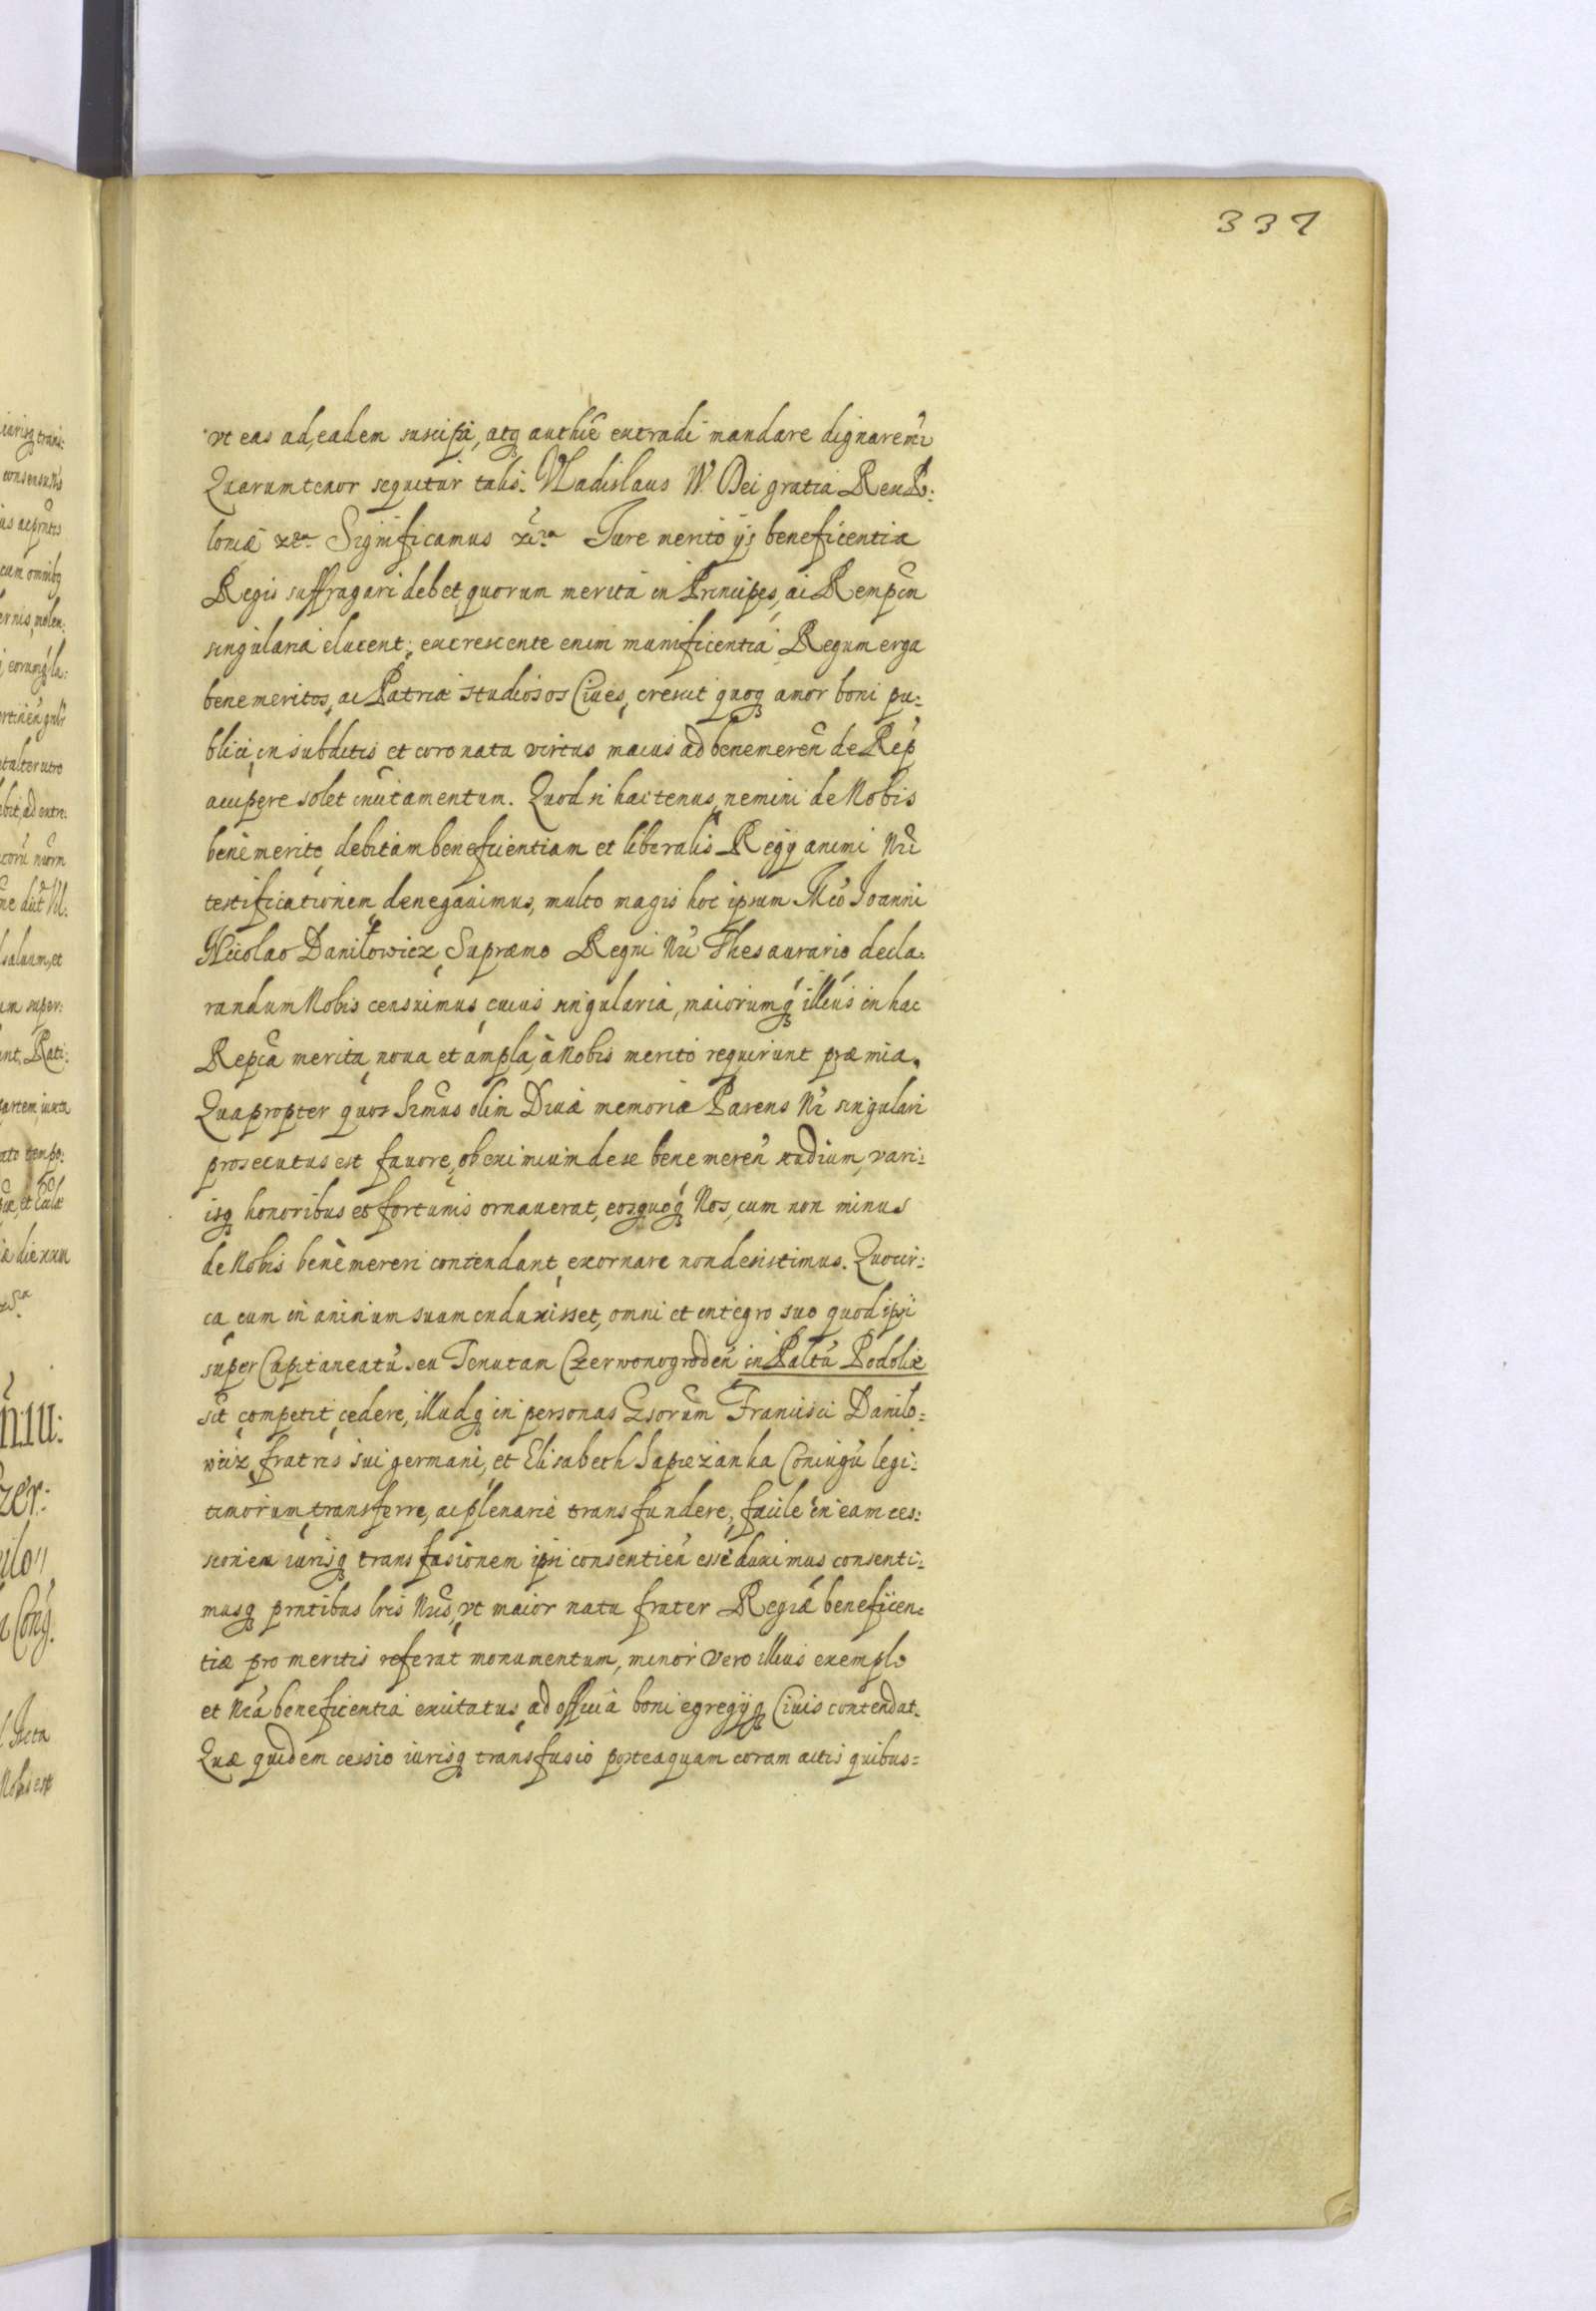 337
vt eas ad eadem suscipi, atq authẽ extradi mandare dignaremur
Quarum tenor sequitur talis. Vladislaus IV. Dei gratia Rex Po:
loniæ etc. Significamus etc. Iure merito ijs beneficentia
Regis suffragari debet, quorum merita in Principes, ac Rempcn
singularia elucent, excrescente enim munificentia Regum erga
benemeritos, ac Patriæ studiosos Ciues, crescit quoq amor boni pu:
blici, in subditis et coronata virtus maius ad benemereñ de Rep
accipere solet incitamentum. Quod si hactenus, nemini de Nobis
benè merito, debitam beneficientiam et liberalis Regij animi Nri
testificationem denegauimus, multo magis hoc ipsum Mco Ioanni
Nicolao Daniłowicz Supræmo Regni Nri Thesaurario decla:
randum Nobis censuimus, cuius singularia, maiorumq illius in hac
Repca merita, noua et ampla, à Nobis merito requirunt præmia.
Quapropter quos Srmus olim Diuæ memoriæ Parens Nr singulari
prosecutus est fauore, ob eximium de se bene mereñ studium, vari:
isq honoribus et fortunis ornauerat, eosquoq Nos, cum non minus
de Nobis benè mereri contendant, exornare non desistimus. Quocir:
ca cum in animum suum induxisset, omni et integro suo quod ipsi
super Capitaneatũ seu Tenutam Czerwonogrodeñ in Paltũ Podoliæ
sit competit, cedere, illudq in personas Gsorum Francisci Danilo:
wicz, fratris sui germani, et Elisabeth Sapiezanka Coniugũ legi:
timorum transferre, ac plenarie transfundere, facile in eam ces:
sionem iurisq transfusionem ipsi consentieñ esse duximus consenti:
musq prntibus lris Nris, vt maior natu frater Regiæ beneficen:
tiæ pro meritis referat monumentum, minor vero illius exemplo
et Nra beneficentia excitatus, ad officia boni egregijq Ciuis contendat.
Quæ quidem cessio iurisq transfusio posteaquam coram actis quibus: